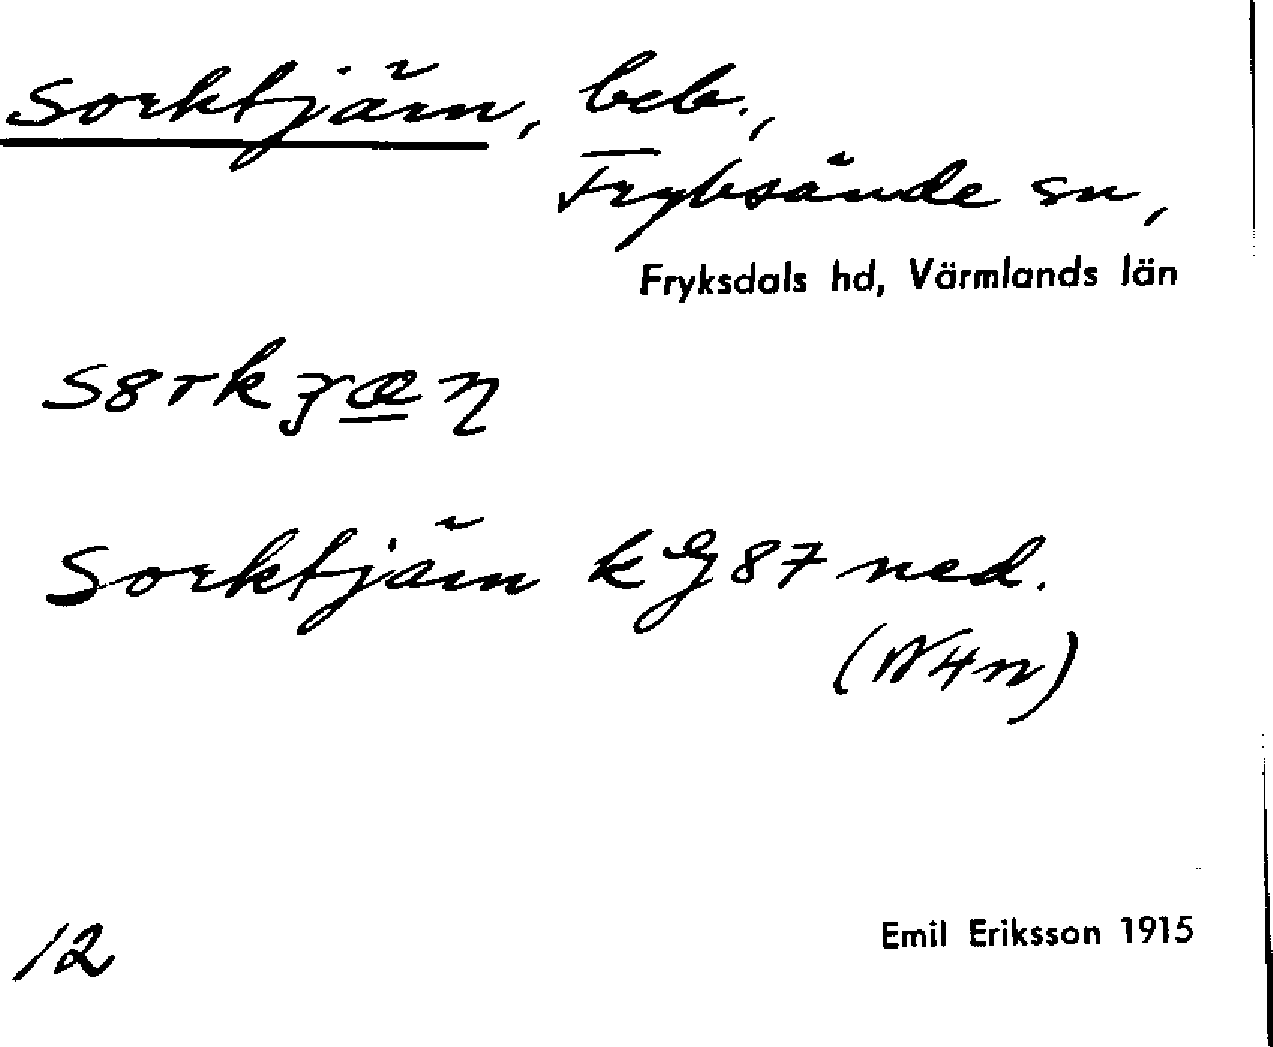 Sorktjärn, beb.,
Fryksände sn,
Fryksdals hd, Värmlands län
Sorktjärn k G 87 ned.
(N4n)
12
Emil Eriksson 1915